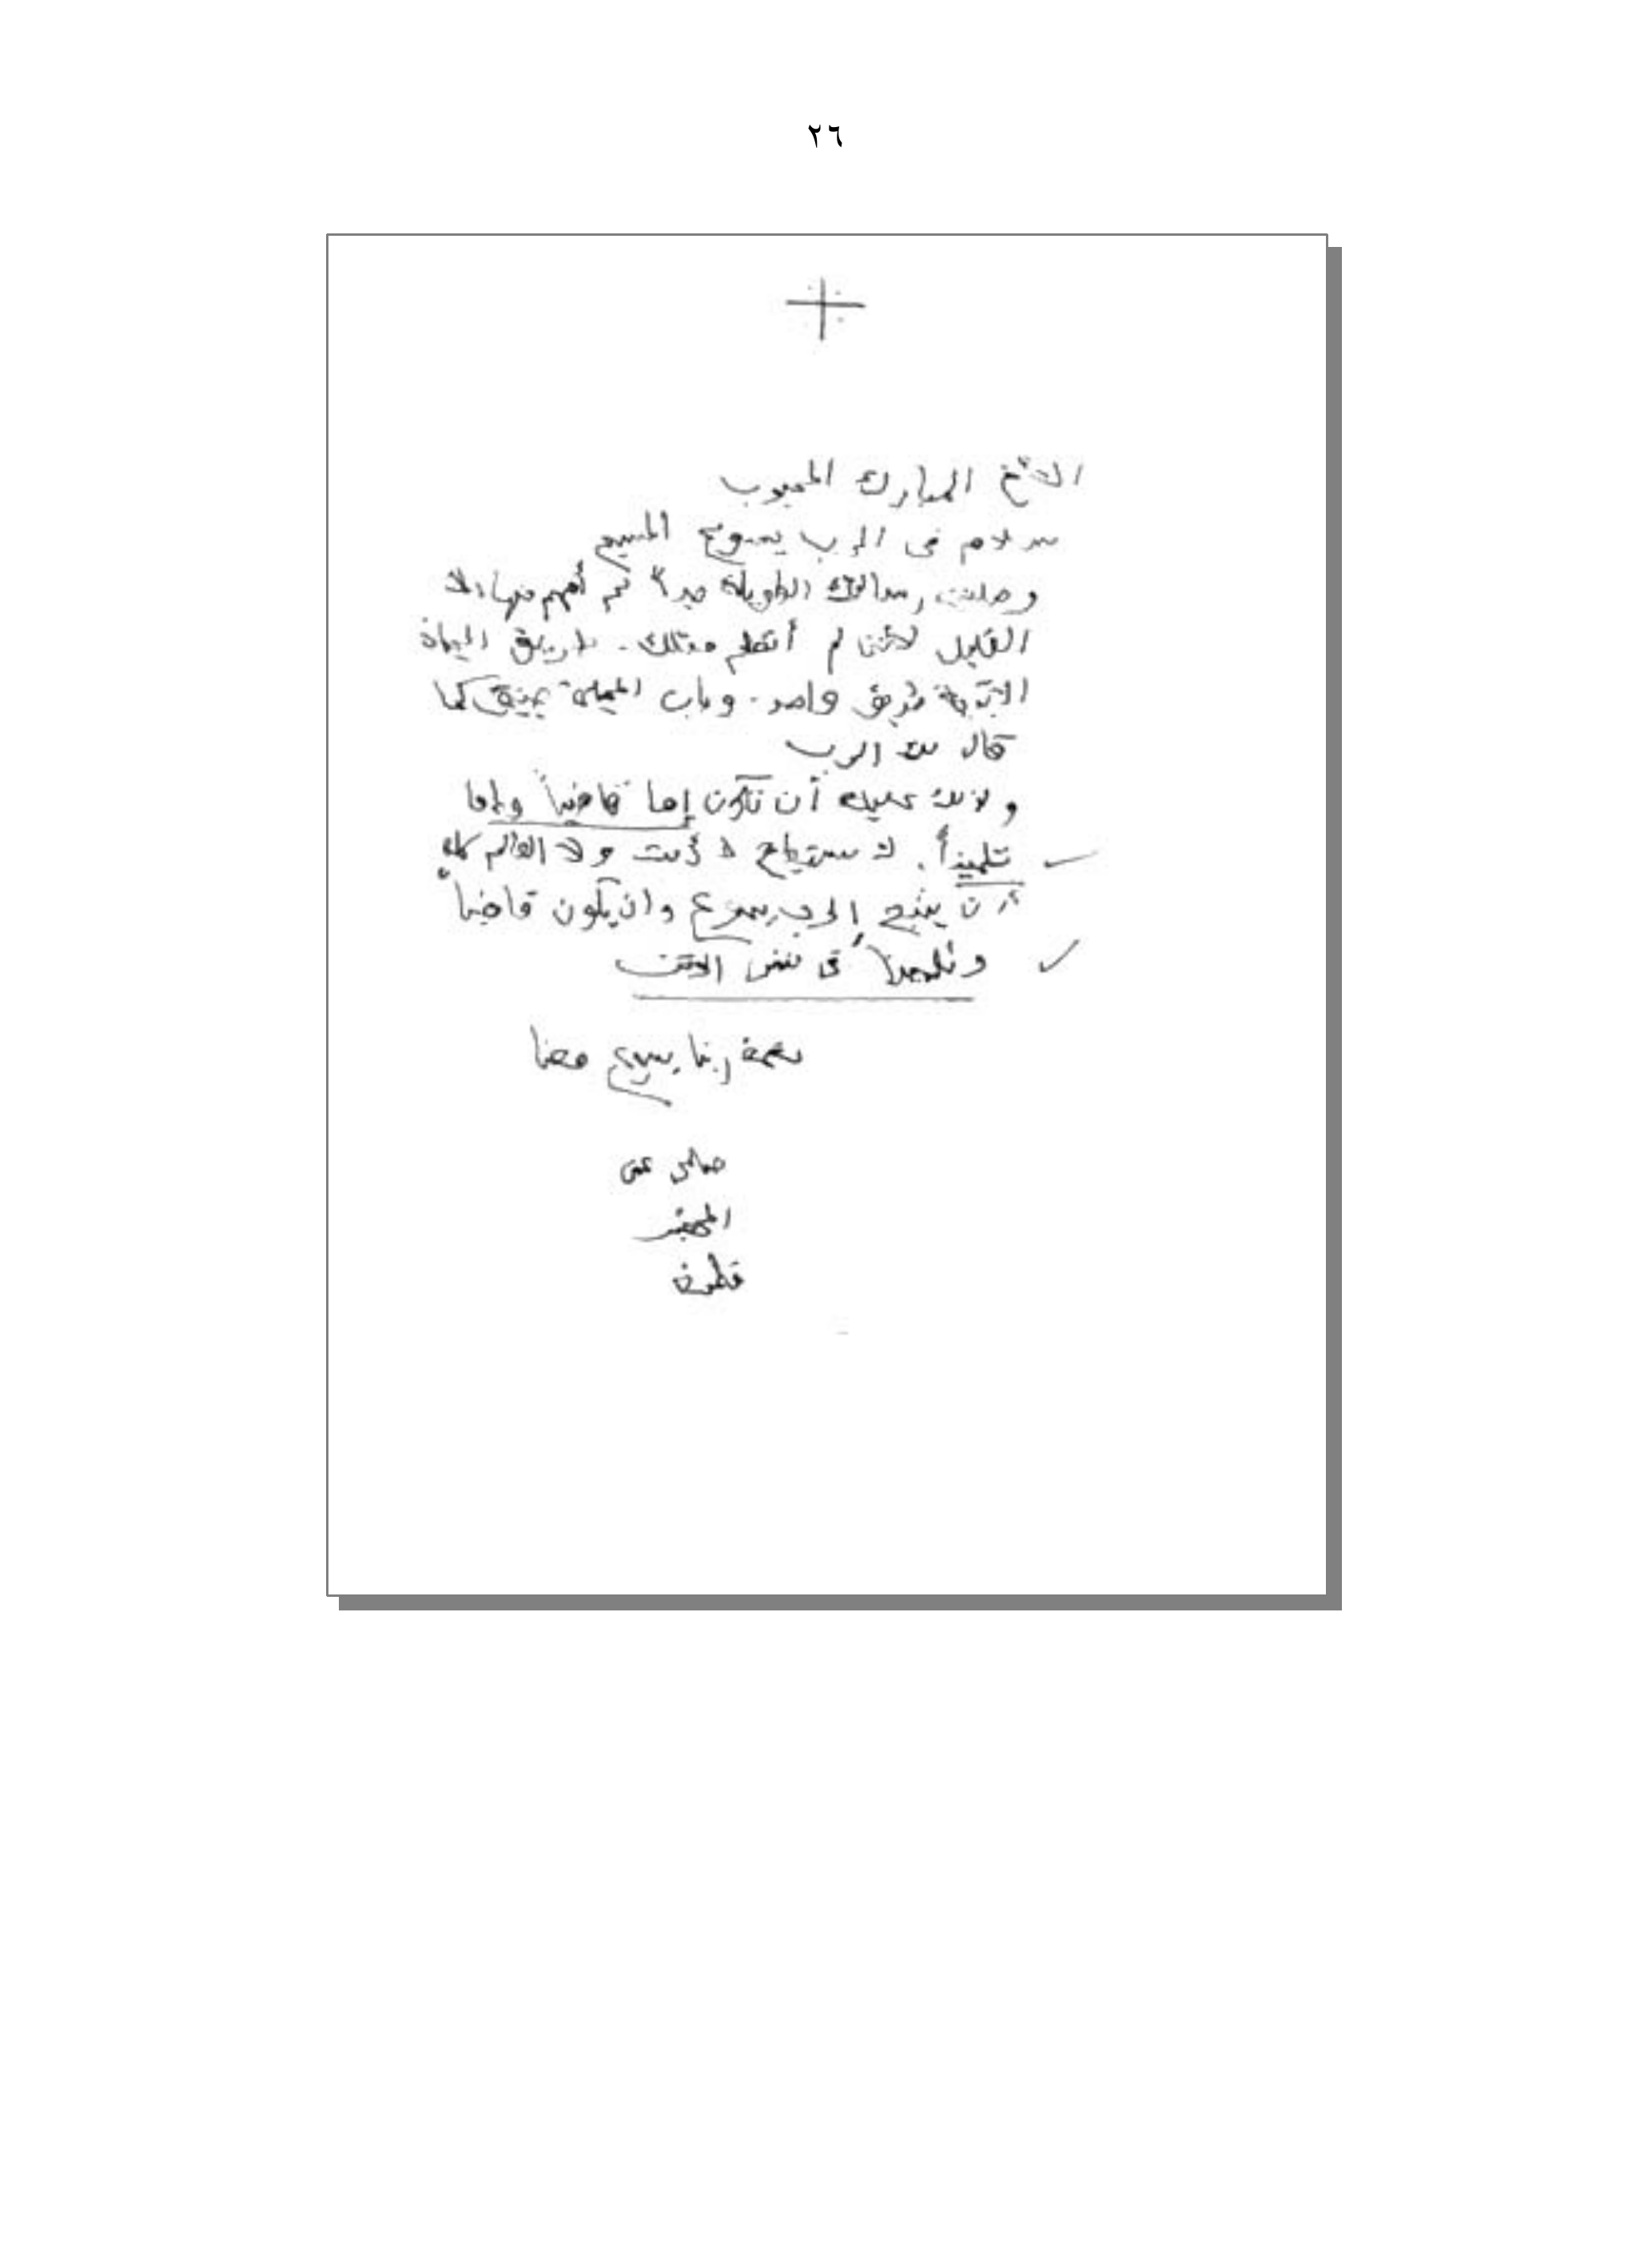 ٢٦
الأخ المبارك المحبوب
سلام فى الرب يسوع المسيح
وصلتنى رسالتك الطويلة جداً لم أفهم منها إلا
القليل لأننى لم أتعلم مثلك. طريق الحياة
الأبدية طريق واحد. وباب الحياة ضيق كما
قال لنا الرب
ولذلك عليك أن تكون إما قاضياً وإما
تلميذاً. لا يستطيع لا أنت ولا العالم كله
أن يتبع الرب يسوع وان يكون قاضياً
وتلميذاً فى نفس الوقت
نعمة ربنا يسوع معنا
صلى عنى
الحقير